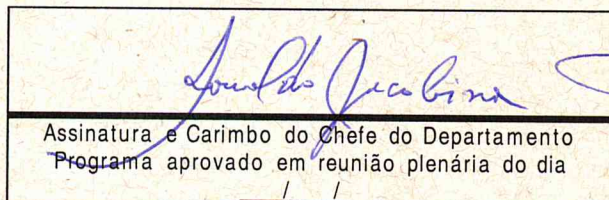 Ronaldo Jacobina
Assinatura e Carimbo do Chefe do Departamento
Programa aprovado em reunião plenária do dia
/ /